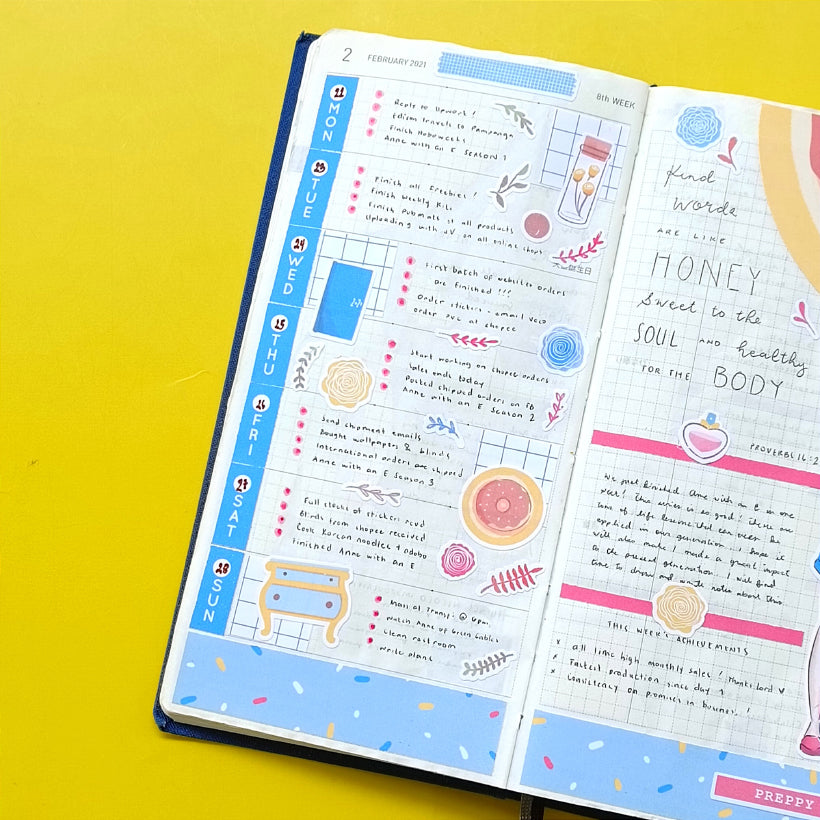 2 FEBRUARY 2021
8th WEEK
22
MON
Reply to Upwork!
travels to Pampanga
Finish
Anne with an E Season 1
23
TUE
Finish all freebies!
Finish Weekly Kits
Finish Pubmats of all products
Uploading with JV on all online shops
天皇誕生日
24
WED
First batch of website orders
are finished !!!
Order stickers - email
order PVC at shopee
25
THU
Start working on shopee orders
Sales ends today
Posted shipped orders on FB
Anne with an E Season 2
26
FRI
Send shipment emails
Bought wallpapers & blinds
International orders are shipped
Anne with an E Season 3
27
SAT
Full stocks of stickers
Blinds from shopee received
Cook Korean noodles + adobo
Finished Anne with an E
28
SUN
Mass at @ 4pm
Watch Anne of Green Gables
Clean restroom
Write plans
Kind
Words
ARE LIKE
HONEY
Sweet to the
SOUL AND healthy
FOR THE BODY
PROVERBS 16:2
We just finished Anne with an E on one
week! This series is so good! There are
tons of life lessons that can even be
applied in our generation. I hope it
will also make a great impact
to the present generation. I will find
time to draw and write notes about this.
THIS WEEK'S ACHIEVEMENTS
x all time high monthly sales! Thanks Lord ♥
x Fastest production since day 1
x Consistency on promises in business!
PREPPY